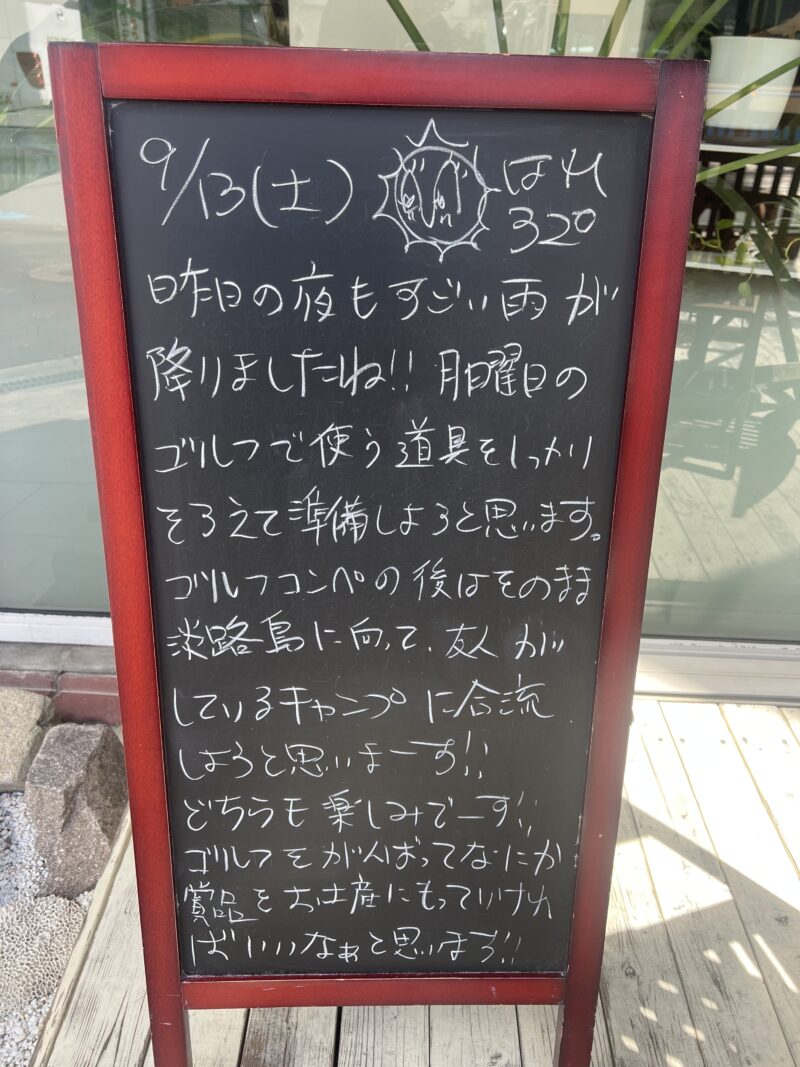 9/13(土) はれ
32°
昨日の夜もすごい雨が
降りましたね!! 月曜日の
ゴルフで使う道具をしっかり
そろえて準備しようと思います。
ゴルフコンペの後はそのまま
淡路島に向って、友人が
しているキャンプに合流
しようと思いまーす!!
どちらも楽しみでーす!!
ゴルフをがんばってなにか
賞品をお土産にもっていけれ
ばいいなぁと思います!!